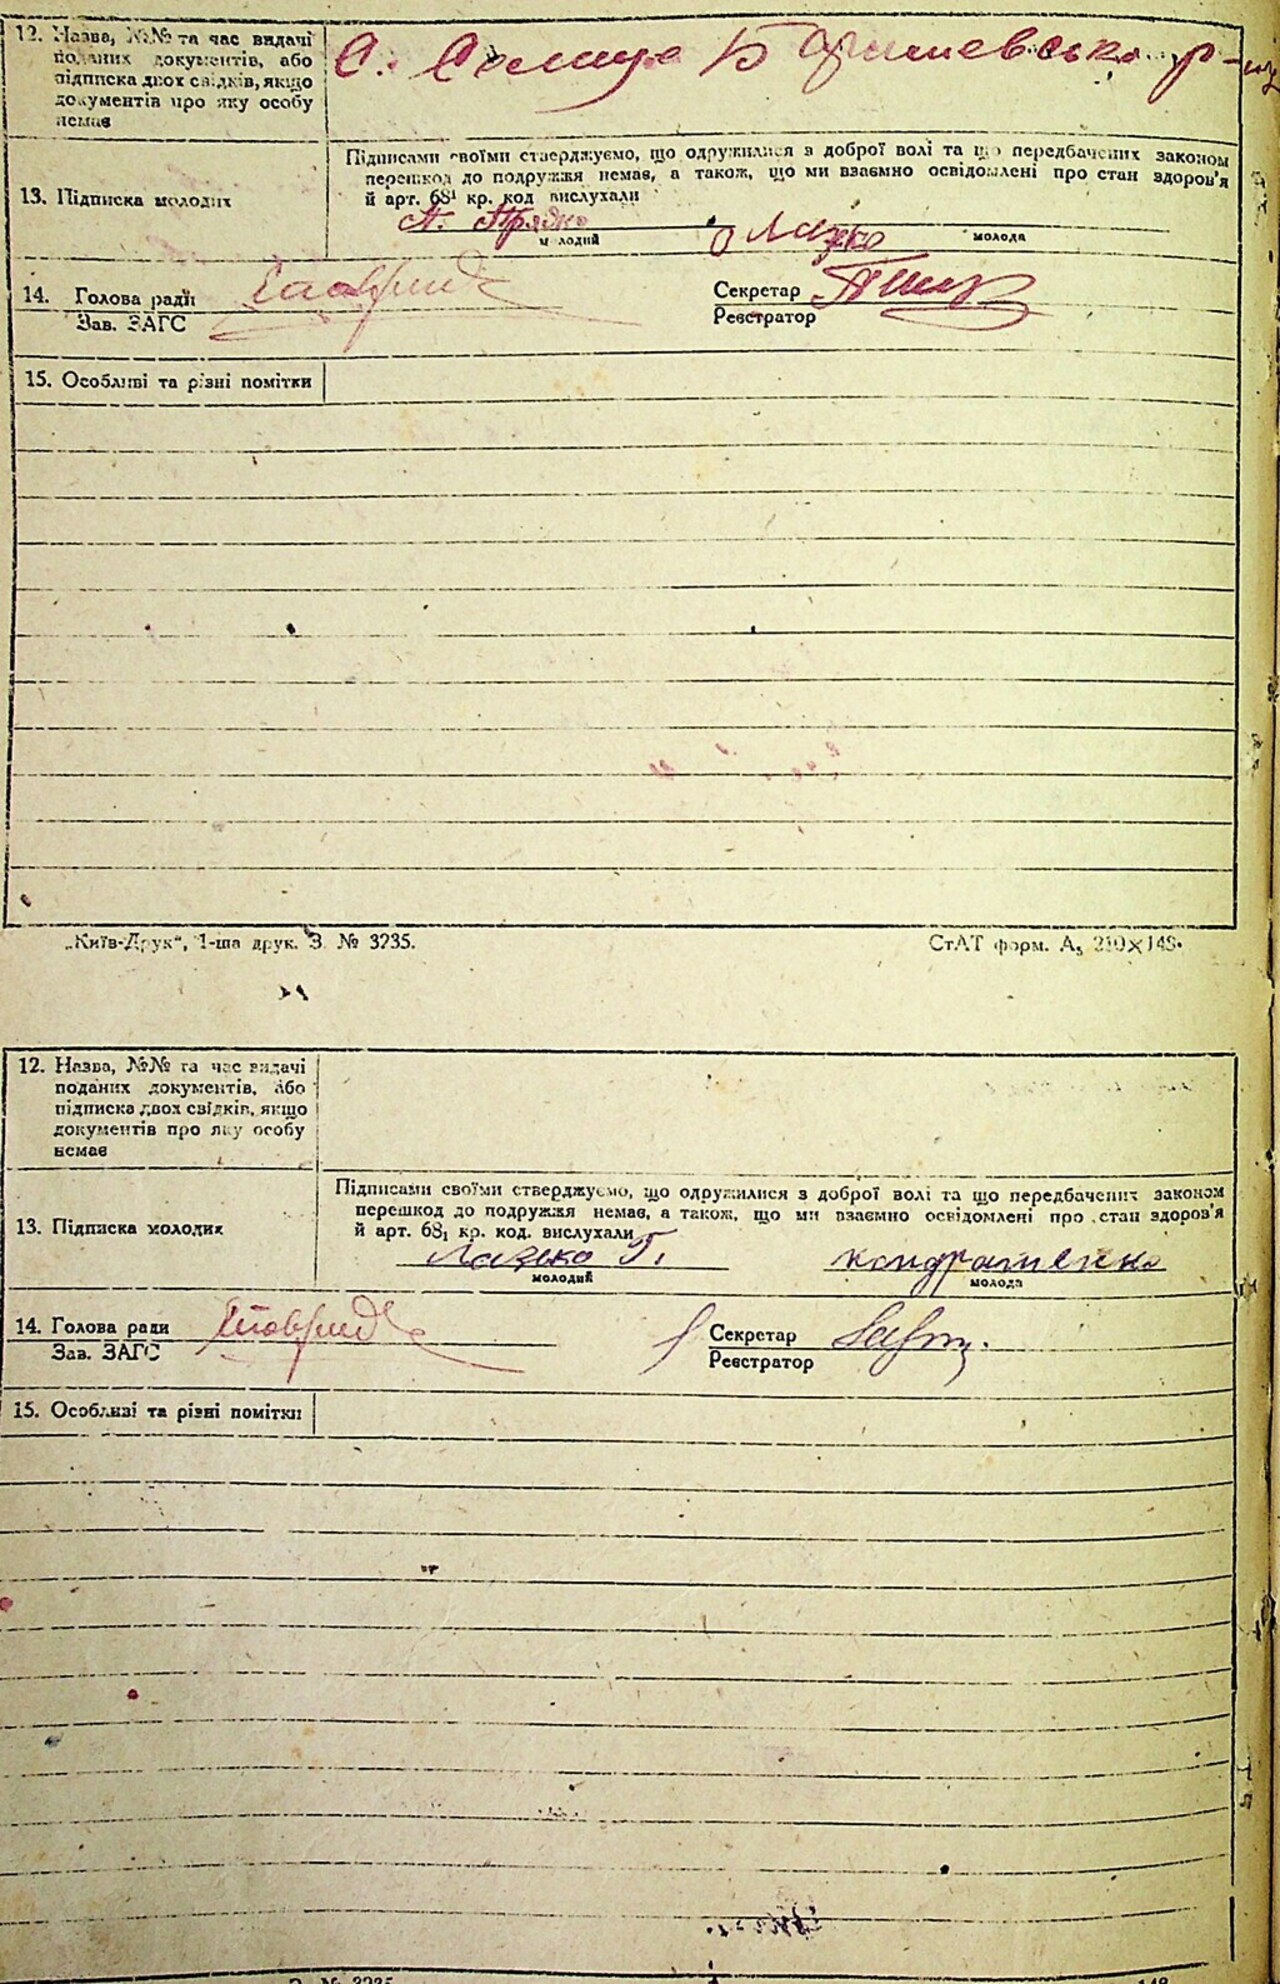 12. Назва, №№ та час видачі
поданих документів, або
підписка двох свідків, якщо
документів про яку особу
немає
С. Селище Баришевська р-ну
13. Підписка молодих
Підписами своїми стверджуємо, що одружилися з доброї волі та що передбачених законом
перешкод до подружжя немає, а також, що ми взаємно освідомлені про стан здоров'я
й арт. 68¹ кр. код вислухали
А. Прядко
О Лазко
молодий
молода
14. Голова ради
Зав. ЗАГС
Секретар
Реєстратор
15. Особливі та різні помітки
„Київ-Друк“, 1-ша друк. З. № 3235.
СтАТ форм. А₅ 210×148.
12. Назва, №№ та час видачі
поданих документів, або
підписка двох свідків, якщо
документів про яку особу
немає
13. Підписка молодих
Підписами своїми стверджуємо, що одружилися з доброї волі та що передбачених законом
перешкод до подружжя немає, а також, що ми взаємно освідомлені про стан здоров'я
й арт. 68₁ кр. код. вислухали
Лазько Г.
кондратенко
молодий
молода
14. Голова ради
Зав. ЗАГС
Секретар
Реєстратор
15. Особливі та різні помітки
З. № 3235
148